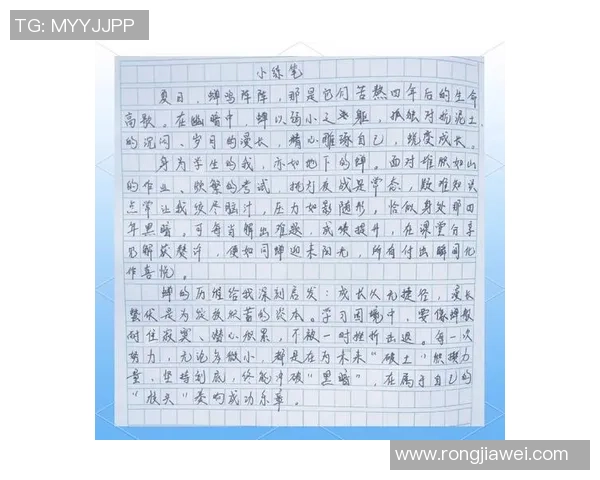 TG: MYYJJPP
小练笔
夏日，蝉鸣阵阵，那是它们苦熬四年后的生命
高歌。在幽暗中，蝉以弱小之躯，孤独对抗泥土
的沉闷、岁月的漫长，精心雕琢自己，蜕变成长。
身为学生的我，亦如地下的蝉。面对堆积如山
的作业、频繁的考试，挑灯夜战是常态，疑难知识
点常让我绞尽脑汁，压力如影随形，恰似身处那四
年黑暗。可每当解出难题，成绩提升，在课堂分享
见解获赞许，便如同蝉迎来阳光，所有付出瞬间化
作喜悦。
蝉的历程给我深刻启发：成长从无捷径，漫长
蛰伏是为绽放积蓄的资本。学习困境中，要像蝉般
耐住寂寞、潜心积累，不被一时挫折击退。每一次
努力，无论多微小，都是在为未来“破土”积攒力
量，坚持到底，终能冲破“黑暗”，在属于自己的
“枝头”奏响成功乐章。
www.rongjiawei.com